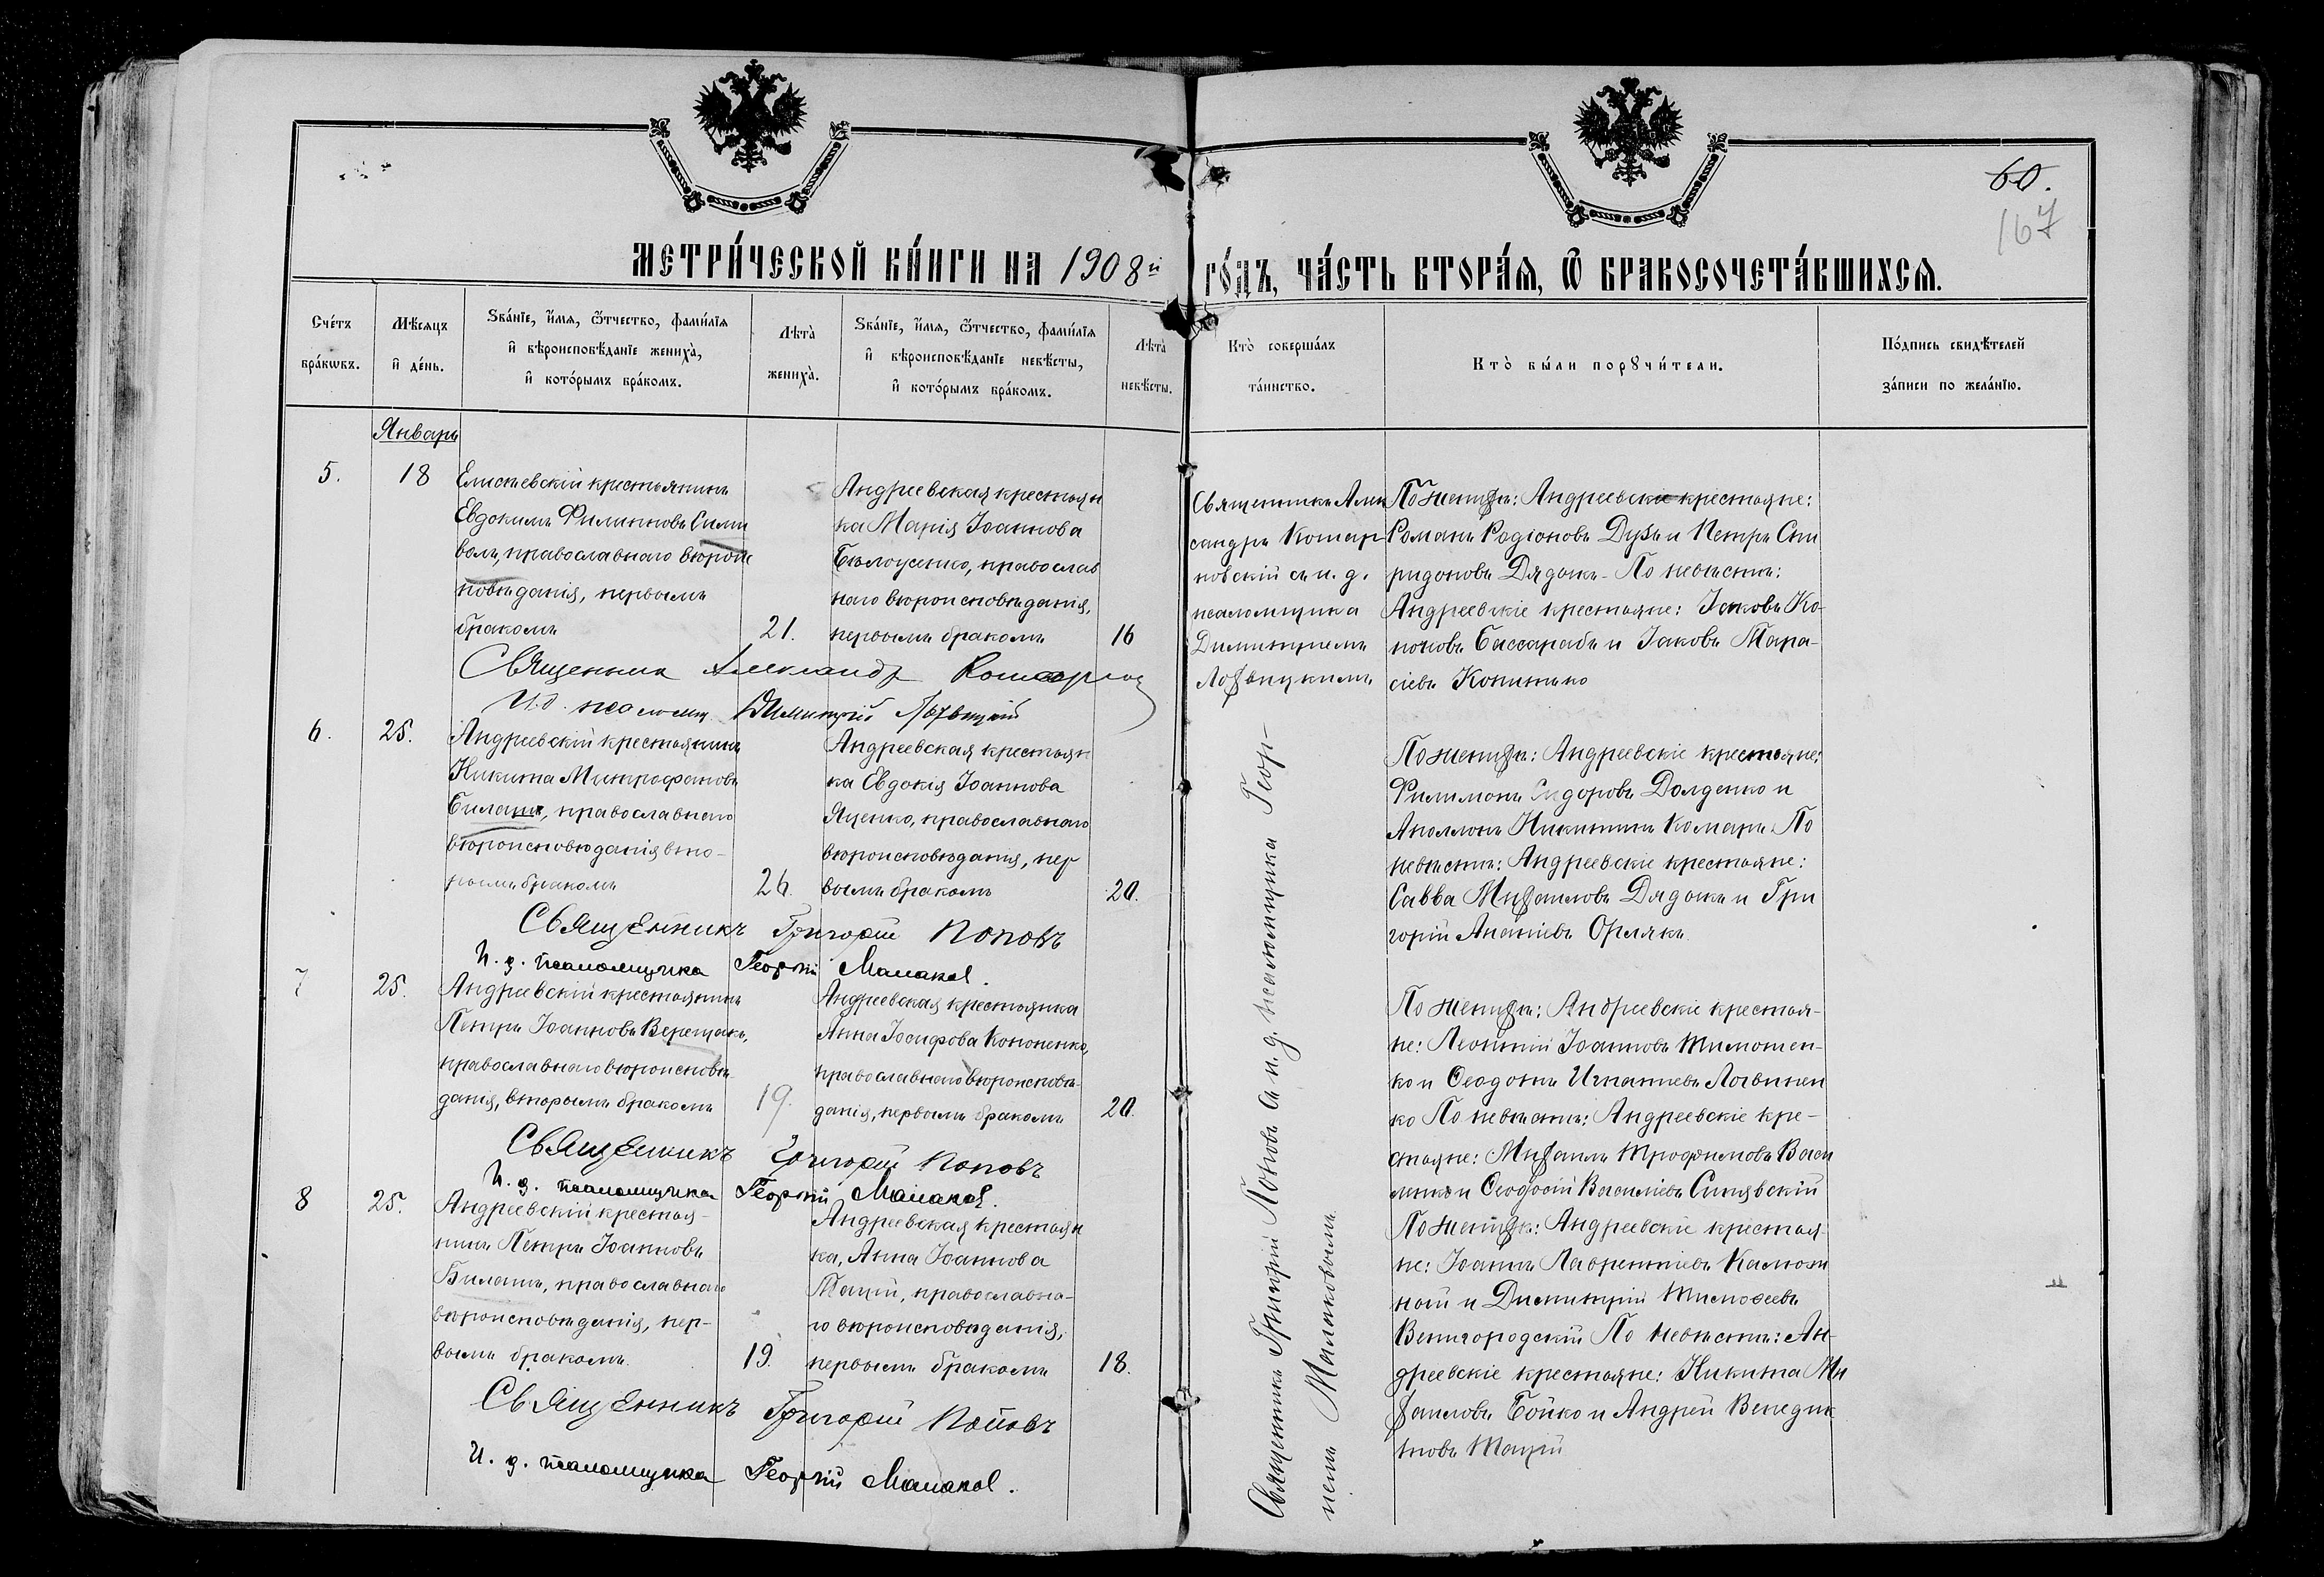 60.
167
МЕТРИ́ЧЕСКОЙ КНИ́ГИ НА 1908й ГО́ДЪ, ЧА́СТЬ ВТОРА́Я, Ѿ БРАКОСОЧЕТА́ВШИХСЯ.
Сче́тъ
бра́кωвъ.
Мѣ́сяцъ
и де́нь.
Ѕва́нїе, и́мя, ѻ́тчество, фами́лїя
и вѣроисповѣ́данїе жениха̀,
и кото́рымъ бра́комъ.
Лѣта̀
жениха̀.
Ѕва́нїе, и́мя, ѻ́тчество, фами́лїя
и вѣроисповѣ́данїе невѣ́сты,
и кото́рымъ бра́комъ.
Лѣта̀
невѣ́сты.
Кто̀ соверша́лъ
та́инство.
Кто̀ бы́ли порꙋчи́тели.
По́дпись свидѣ́телей
за́писи по жела́нїю.
Январь
5.
18
Елисѣевскій крестьянинъ
Евдокимъ Филипповъ Сили
волъ, православнаго вѣроис
повѣданія, первымъ
бракомъ
21.
Андреевская крестьян
ка Марія Іоаннова
Бѣлоусенко, православ
наго вѣроисповѣданія,
первымъ бракомъ
16
Священникъ Алек
сандръ Котляр
ковскій съ и. д.
псаломщика
Димитріемъ
По женихѣ: Андреевскіе крестьяне:
Романъ Родіоновъ Дузь и Петръ Спи
ридоновъ Дядокъ. По невѣстѣ:
Андреевскіе крестьяне: Іаковъ Ко-
ноновъ Бассарабъ и Іаковъ Тара-
сіевъ Копитько
Священникъ Александръ
И.д. псаломщ. Димитрій
6.
25.
Андреевскій крестьянинъ
Никита Митрофановъ
Билашъ, православнаго
вѣроисповѣданія вто-
рымъ бракомъ
26.
Андреевская крестьян
ка Евдокія Іоаннова
Яценко, православнаго
вѣроисповѣданія, пер
вымъ бракомъ
20.
По женихѣ: Андреевскіе крестьяне:
Филимонъ Сидоровъ Долденко и
Аполлонъ Никитинъ Комаръ. По
невѣстѣ: Андреевскіе крестьяне:
Савва Михаиловъ Дядокъ и Гри
горій Ананіевъ Орлякъ.
Священникъ Григорій Поповъ
И. д. псаломщика Георгій Малаков.
7
25.
Андреевскій крестьянинъ
Петръ Іоанновъ Верещакъ,
православнаго вѣроисповѣ-
данія, вторымъ бракомъ
19.
Андреевская крестьянка
Анна Іосифова Кононенко,
православнаго вѣроисповѣ-
данія, первымъ бракомъ
20.
По женихѣ: Андреевскіе крестья-
не: Леонтій Іоанновъ Тимошен-
ко и Ѳеодотъ Игнатіевъ Логвинен
ко По невѣстѣ: Андреевскіе кре-
стьяне: Михаилъ Трофимовъ Васи
лько и Ѳеодосій Василіевъ Синявскій
Священникъ Григорій Поповъ
И. д. псаломщика Георгій Малаков.
8
25.
Андреевскій крестья-
нинъ Петръ Іоанновъ
Билашъ, православнаго
вѣроисповѣданія, пер-
вымъ бракомъ.
19.
Андреевская крестьян
ка, Анна Іоаннова
Тацій, православна-
го вѣроисповѣданія,
первымъ бракомъ
18.
По женихѣ: Андреевскіе крестья-
не: Іоаннъ Лаврентіевъ
ной и Димитрій Тимоѳеевъ
Венигородскій По невѣстѣ: Ан-
дреевскіе крестьяне: Никита Ми
хаиловъ Бойко и Андрей Венедик
товъ Тацій
Священникъ Григорій Поповъ
И. д. псаломщика Георгій Малаков.
Священникъ Григорій Поповъ съ и. д. псаломщика Геор-
гіемъ Малаковымъ